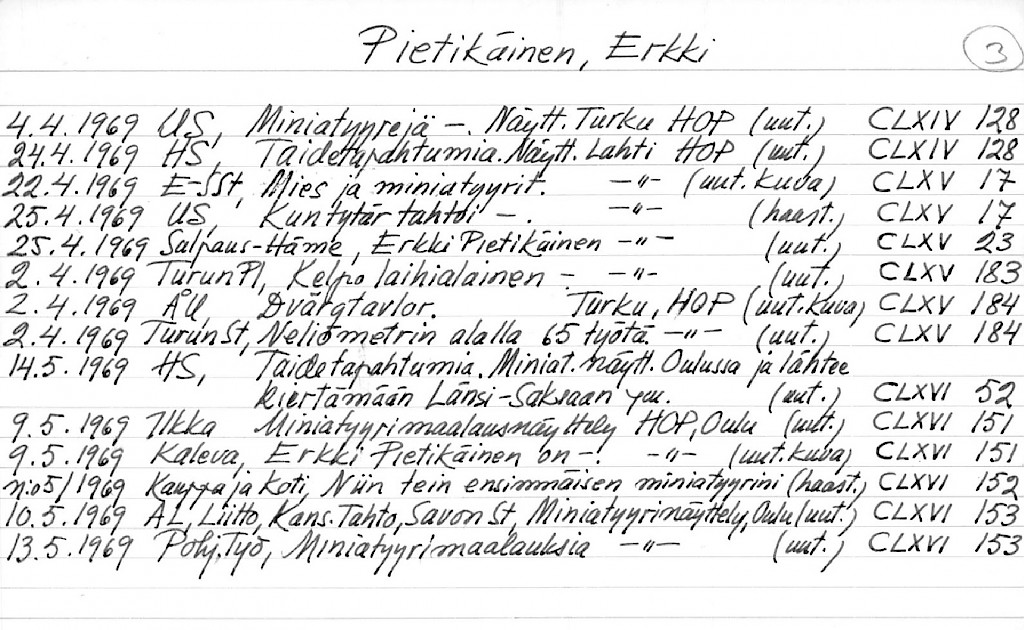 Pietikäinen, Erkki 3
4.4.1969 US, Miniatyyrejä –. Näytt. Turku HOP (uut.) CLXIV 128
24.4.1969 HS, Taidetapahtumia. Näytt. Lahti HOP (uut.) CLXIV 128
22.4.1969 E-SSt, Mies ja miniatyyrit. –"– (uut. kuva) CLXV 17
25.4.1969 US, Kun tytär tahtoi –. –"– (haast.) CLXV 17
25.4.1969 Salpaus-Häme, Erkki Pietikäinen –"– (uut.) CLXV 23
2.4.1969 TurunPl, Kelpo laihialainen – –"– (uut.) CLXV 183
2.4.1969 ÅU, Dvärgtavlor. Turku, HOP (uut.kuva) CLXV 184
2.4.1969 TurunSt, Neliömetrin alalla 65 työtä. –"– (uut.) CLXV 184
14.5.1969 HS, Taidetapahtumia. Miniat.näytt. Oulussa ja lähtee
kiertämään Länsi-Saksaan ym. (uut.) CLXVI 52
9.5.1969 Ilkka Miniatyyrimaalausnäyttely HOP, Oulu (uut.) CLXVI 151
9.5.1969 Kaleva, Erkki Pietikäinen on –. –"– (uut.kuva) CLXVI 151
n:o5/1969 Kauppa ja Koti, Niin tein ensimmäisen miniatyyrini (haast.) CLXVI 152
10.5.1969 AL, Liitto, Kans.Tahto, Savon St, Miniatyyrinäyttely, Oulu (uut.) CLXVI 153
13.5.1969 Pohj.Työ, Miniatyyrimaalauksia –"– (uut.) CLXVI 153